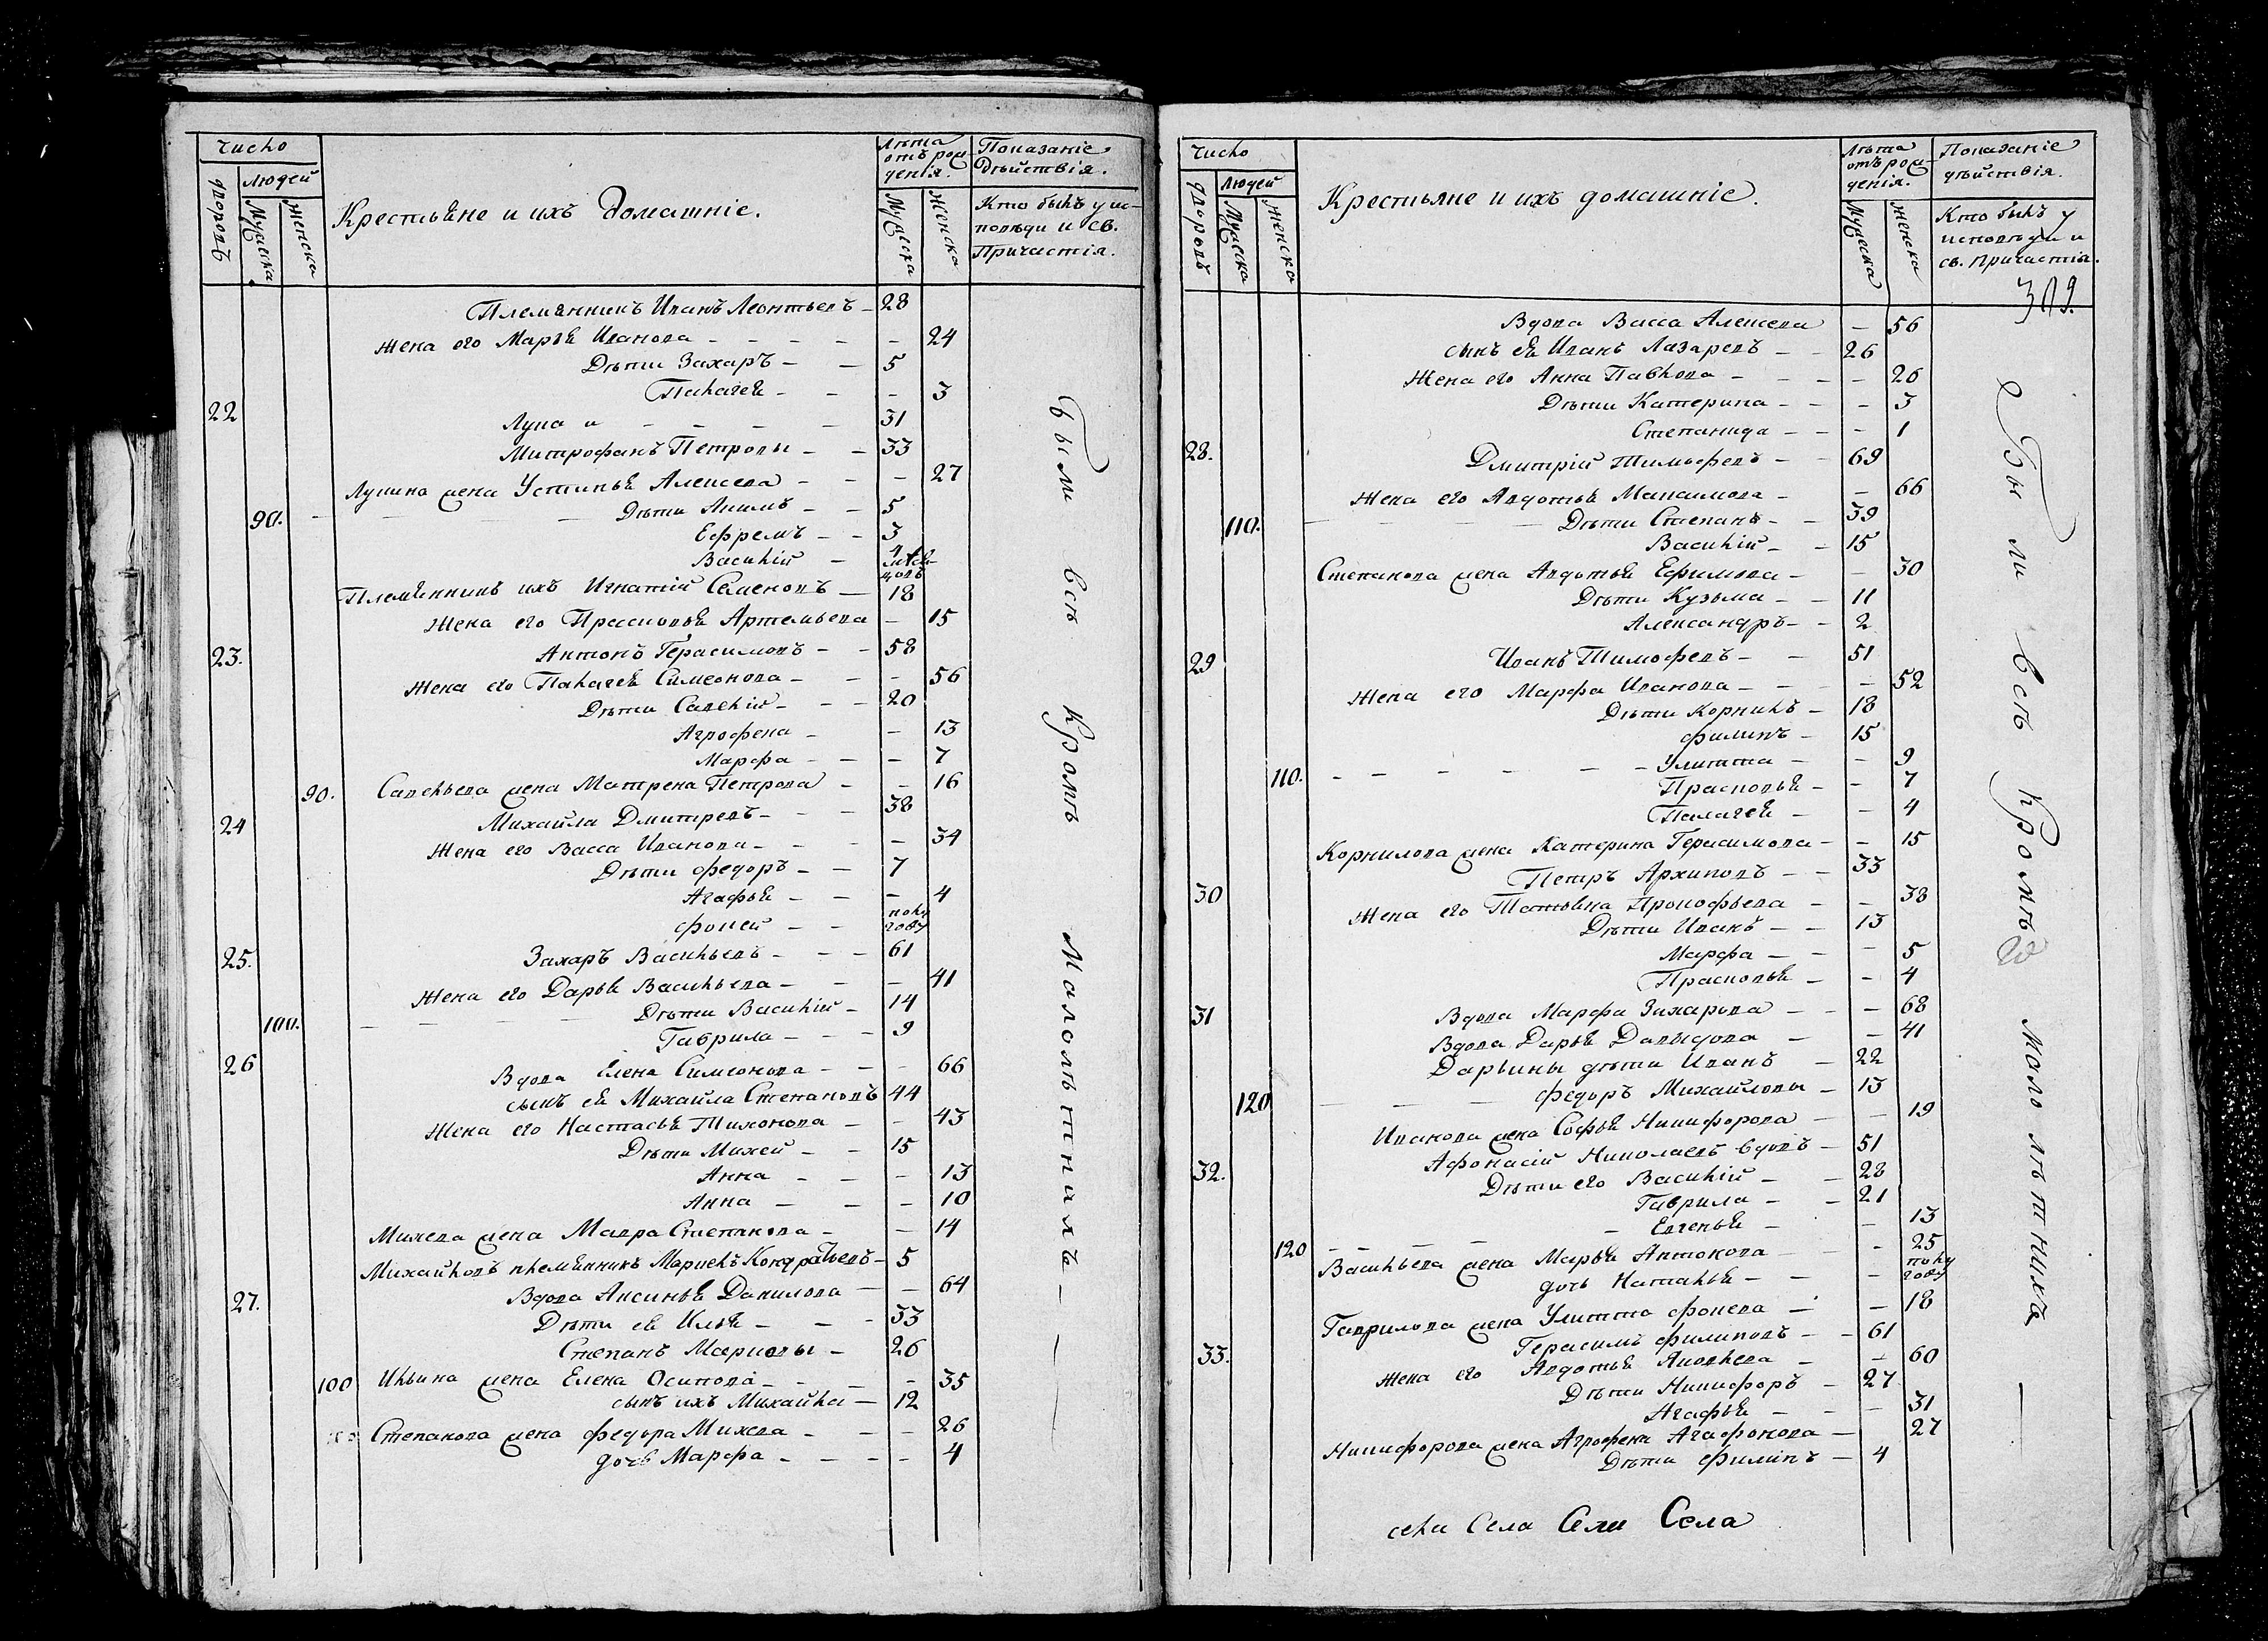 Число
Людей
дворовъ
Мужеска
Женска
Крестьяне и ихъ домашніе.
Лѣта
отъ рож-
денія.
Мужеска
Женска
Показаніе
дѣйствія.
Кто былъ у ис-
повѣди и св.
Причастія.
Племянникъ Иванъ Леонтьевъ – 28
Жена его Марья Иванова – 24
Дѣти Захаръ – 5
Палагея – 3
22 Лупа и – 31
Митрофанъ Петровы – 33
Лупина жена Устинья Алексева – 27
90. Дѣти Якимъ – 5
Ефремъ – 3
Василій –
Племянникъ ихъ Игнатій Семеновъ – 18
Жена его Прасковья Артемьева – 15
23. Антонъ Герасимовъ – 58
Жена его Палагея Симеонова – 56
Дѣти Савелій – 20
Агрофена – 13
Марфа – 7
90. Савельева жена Матрена Петрова – 16
24 Михайла Дмитревъ – 38
Жена его Васса Иванова – 34
Дѣти Федоръ – 7
Агафья – 4
Фокей – полу году
25. Захаръ Васильевъ – 61
Жена его Дарья Васильева – 41
100. Дѣти Василій – 14
Гаврила – 9
26 Вдова Елена Симеонова – 66
сынъ ея Михайла Степановъ 44
Жена его Настасья Тихонова – 43
Дѣти Михей – 15
Анна – 13
Анна – 10
Михеева жена Мавра Степанова – 14
Михайловъ племянникъ Маркелъ Кондратьевъ – 5
27. Вдова Аксинья Данилова – 64
Дѣти ея Илья – 33
Степанъ Марковы – 26
100 Ильина жена Елена Осипова – 35
сынъ ихъ Михайла – 12
Степанова жена Федора Михеева – 26
дочь Марфа – 4
Были всѣ кромѣ Малолѣтныхъ —
Число
Людей
дворовъ
Мужеска
Женска
Крестьяне и ихъ домашніе.
Лѣта
отъ рож-
денія.
Мужеска
Женска
Показаніе
дѣйствія.
Кто былъ у
исповѣди и
св. Причастія.
309.
Вдова Васса Алексева – 56
сынъ ея Иванъ Лазаревъ – 26
Жена его Анна Павлова – 26
Дѣти Катерина – 3
Степанида – 1
28. Дмитрій Тимофевъ – 69
Жена его Авдотья Максимова – 66
110. Дѣти Степанъ – 39
Василій – 15
Степанова жена Авдотья Ефимова – 30
Дѣти Кузьма – 11
Александръ – 2
29 Иванъ Тимофевъ – 51
Жена его Марфа Иванова – 52
Дѣти Корнилъ – 18
Филипъ – 15
110. Улитта – 9
Прасковья – 7
Палагея – 4
Корнилова жена Катерина Герасимова – 15
30 Петръ Архиповъ – 33
Жена его Татьяна Прокофьева – 38
Дѣти Иванъ – 13
Марфа – 5
Прасковья – 4
31 Вдова Марфа Захарова – 68
Вдова Дарья Давыдова – 41
Дарьины дѣти Иванъ – 22
120 Федоръ Михайловы – 13
Иванова жена Софья Никифорова – 19
32. Афонасій Николаевъ вдовъ – 51
Дѣти его Василій – 28
Гаврила – 21
Евгенья – 13
120 Васильева жена Марья Антонова – 25
дочь Наталья – полу году
Гаврилова жена Улитта Фокева – 18
33. Герасимъ Филиповъ – 61
Жена его Авдотья Яковлева – 60
Дѣти Никифоръ – 27
Агафья – 31
Никифорова жена Агрофена Агафонова – 27
Дѣти Филипъ – 4
Были всѣ кромѣ малолѣтныхъ —
села Села Сели Села